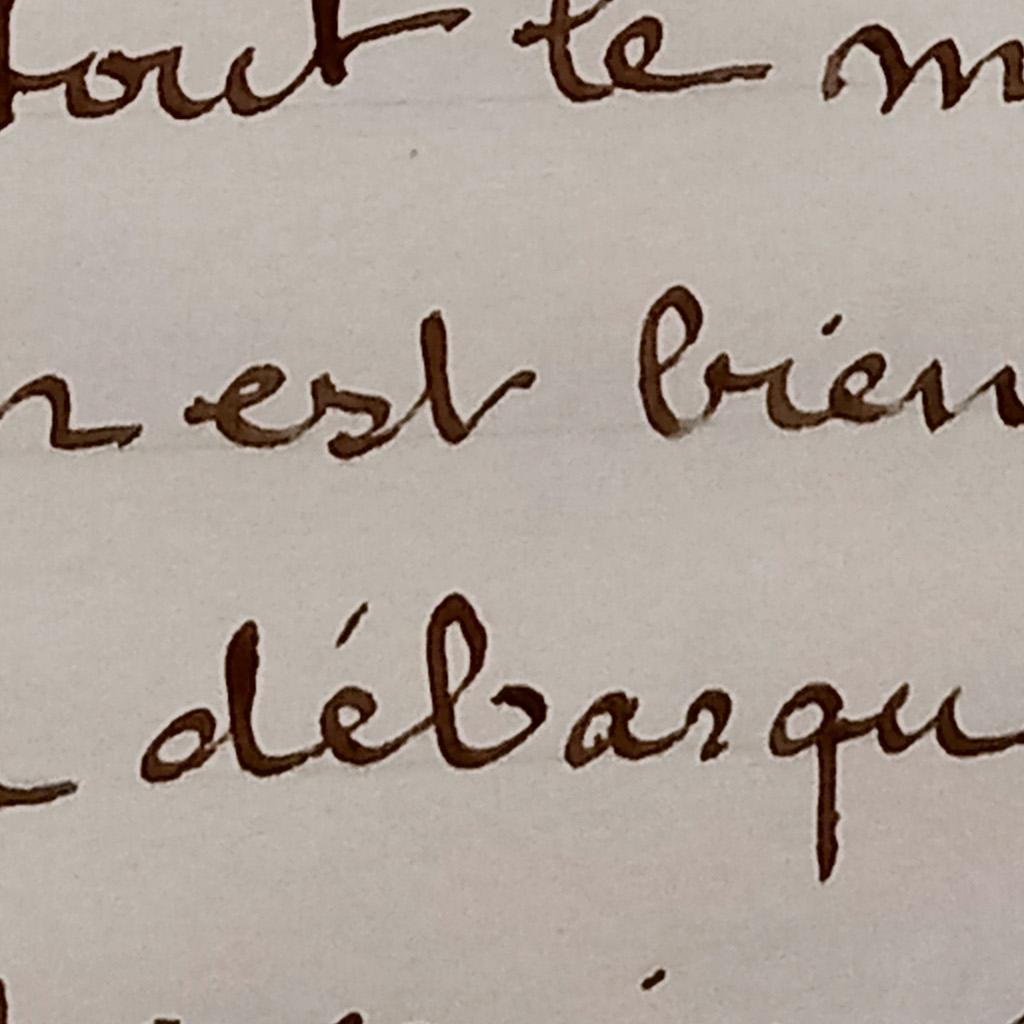 tout le m
n est bien
débarqu